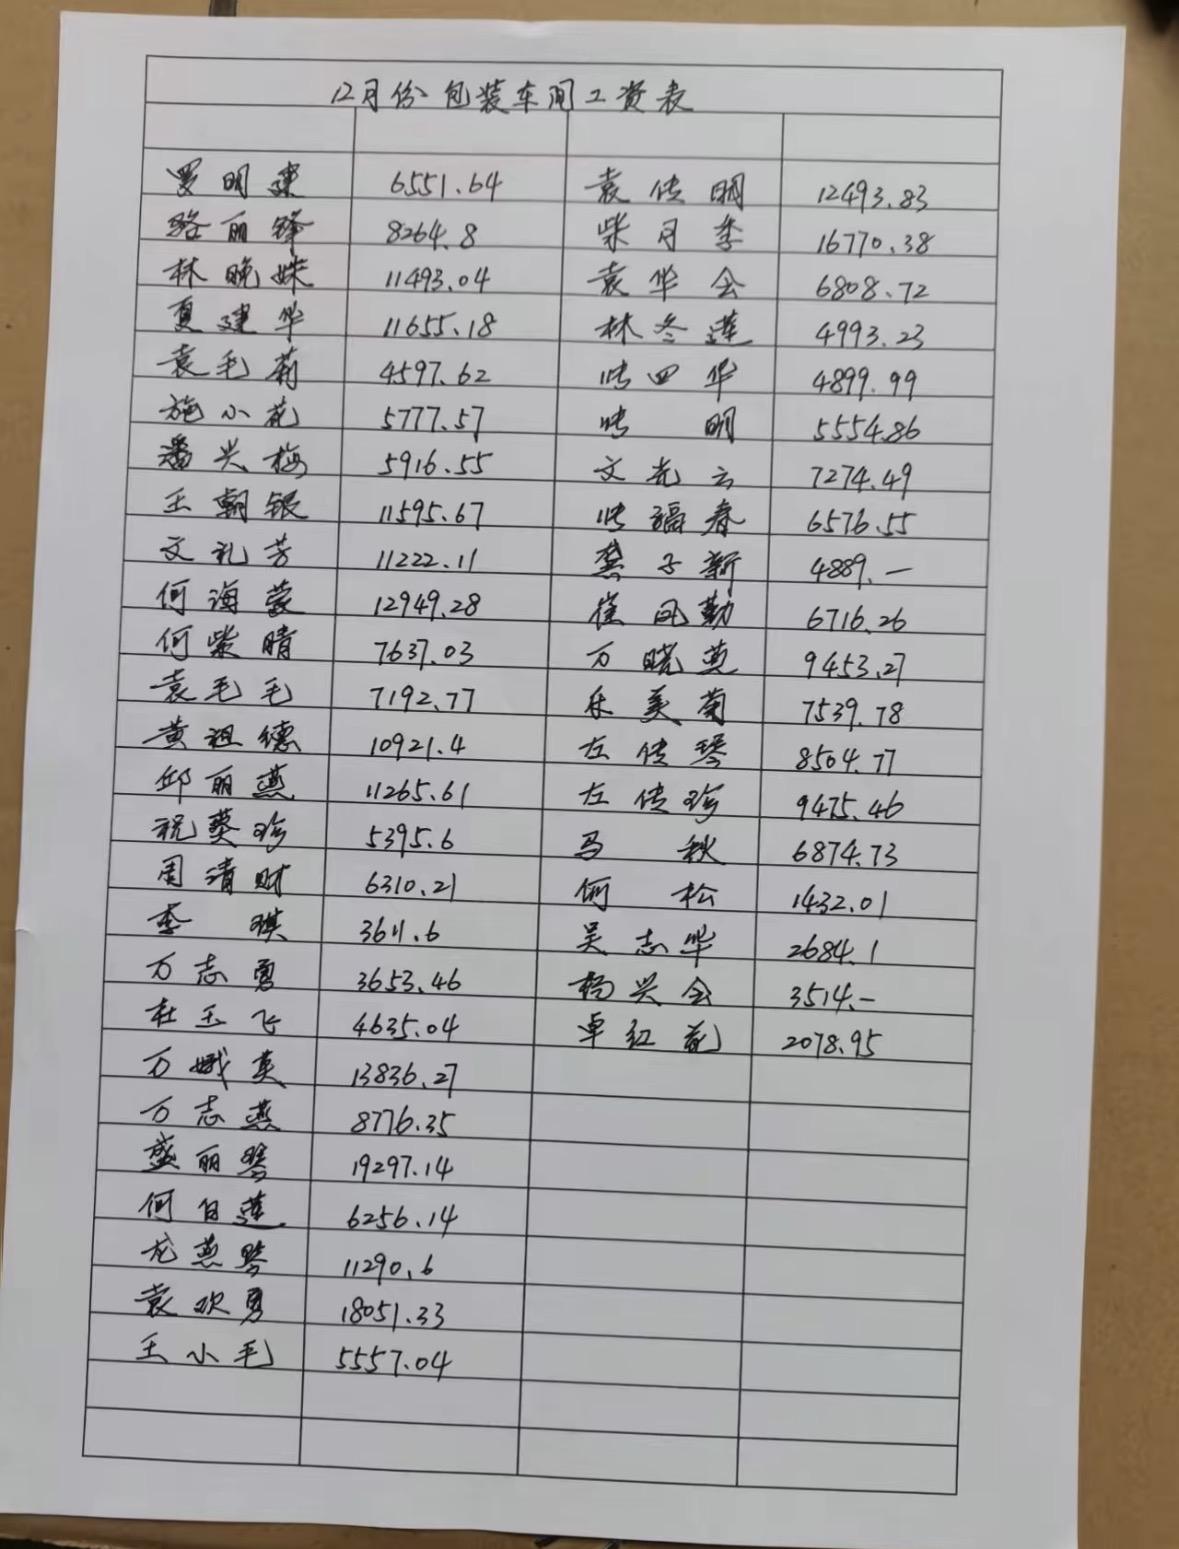 12月份包装车间工资表
罗明建 6551.64 袁传明 12493.83
骆丽锋 8264.8 柴月季 16770.38
林晚妹 11493.04 袁华会 6808.72
夏建华 11655.18 林冬莲 4993.23
袁毛莉 4597.62 四华 4899.99
施小花 5777.57 明 5554.86
潘兴梅 5916.55 文先云 7274.49
王朝银 11595.67 福春 6576.55
文礼芳 11222.11 龚子新 4889.一
何海蓉 12949.28 崔凤勤 6716.26
何紫晴 7637.03 万晓英 9453.27
袁毛毛 7192.77 乐美菊 7539.78
黄祖德 10921.4 左传琴 8504.77
邱丽燕 11265.61 左传珍 9475.46
祝葵珍 5395.6 马秋 6874.73
周清财 6310.21 何松 1432.01
李琪 3611.6 吴志华 2684.1
万志勇 3653.46 杨兴会 3514.-
杜玉飞 4635.04 卓红花 2078.95
万娥英 13836.27
万志燕 8776.35
盛丽琴 19297.14
何白莲 6256.14
龙燕琴 11290.6
袁欢勇 18051.33
王小毛 5557.04